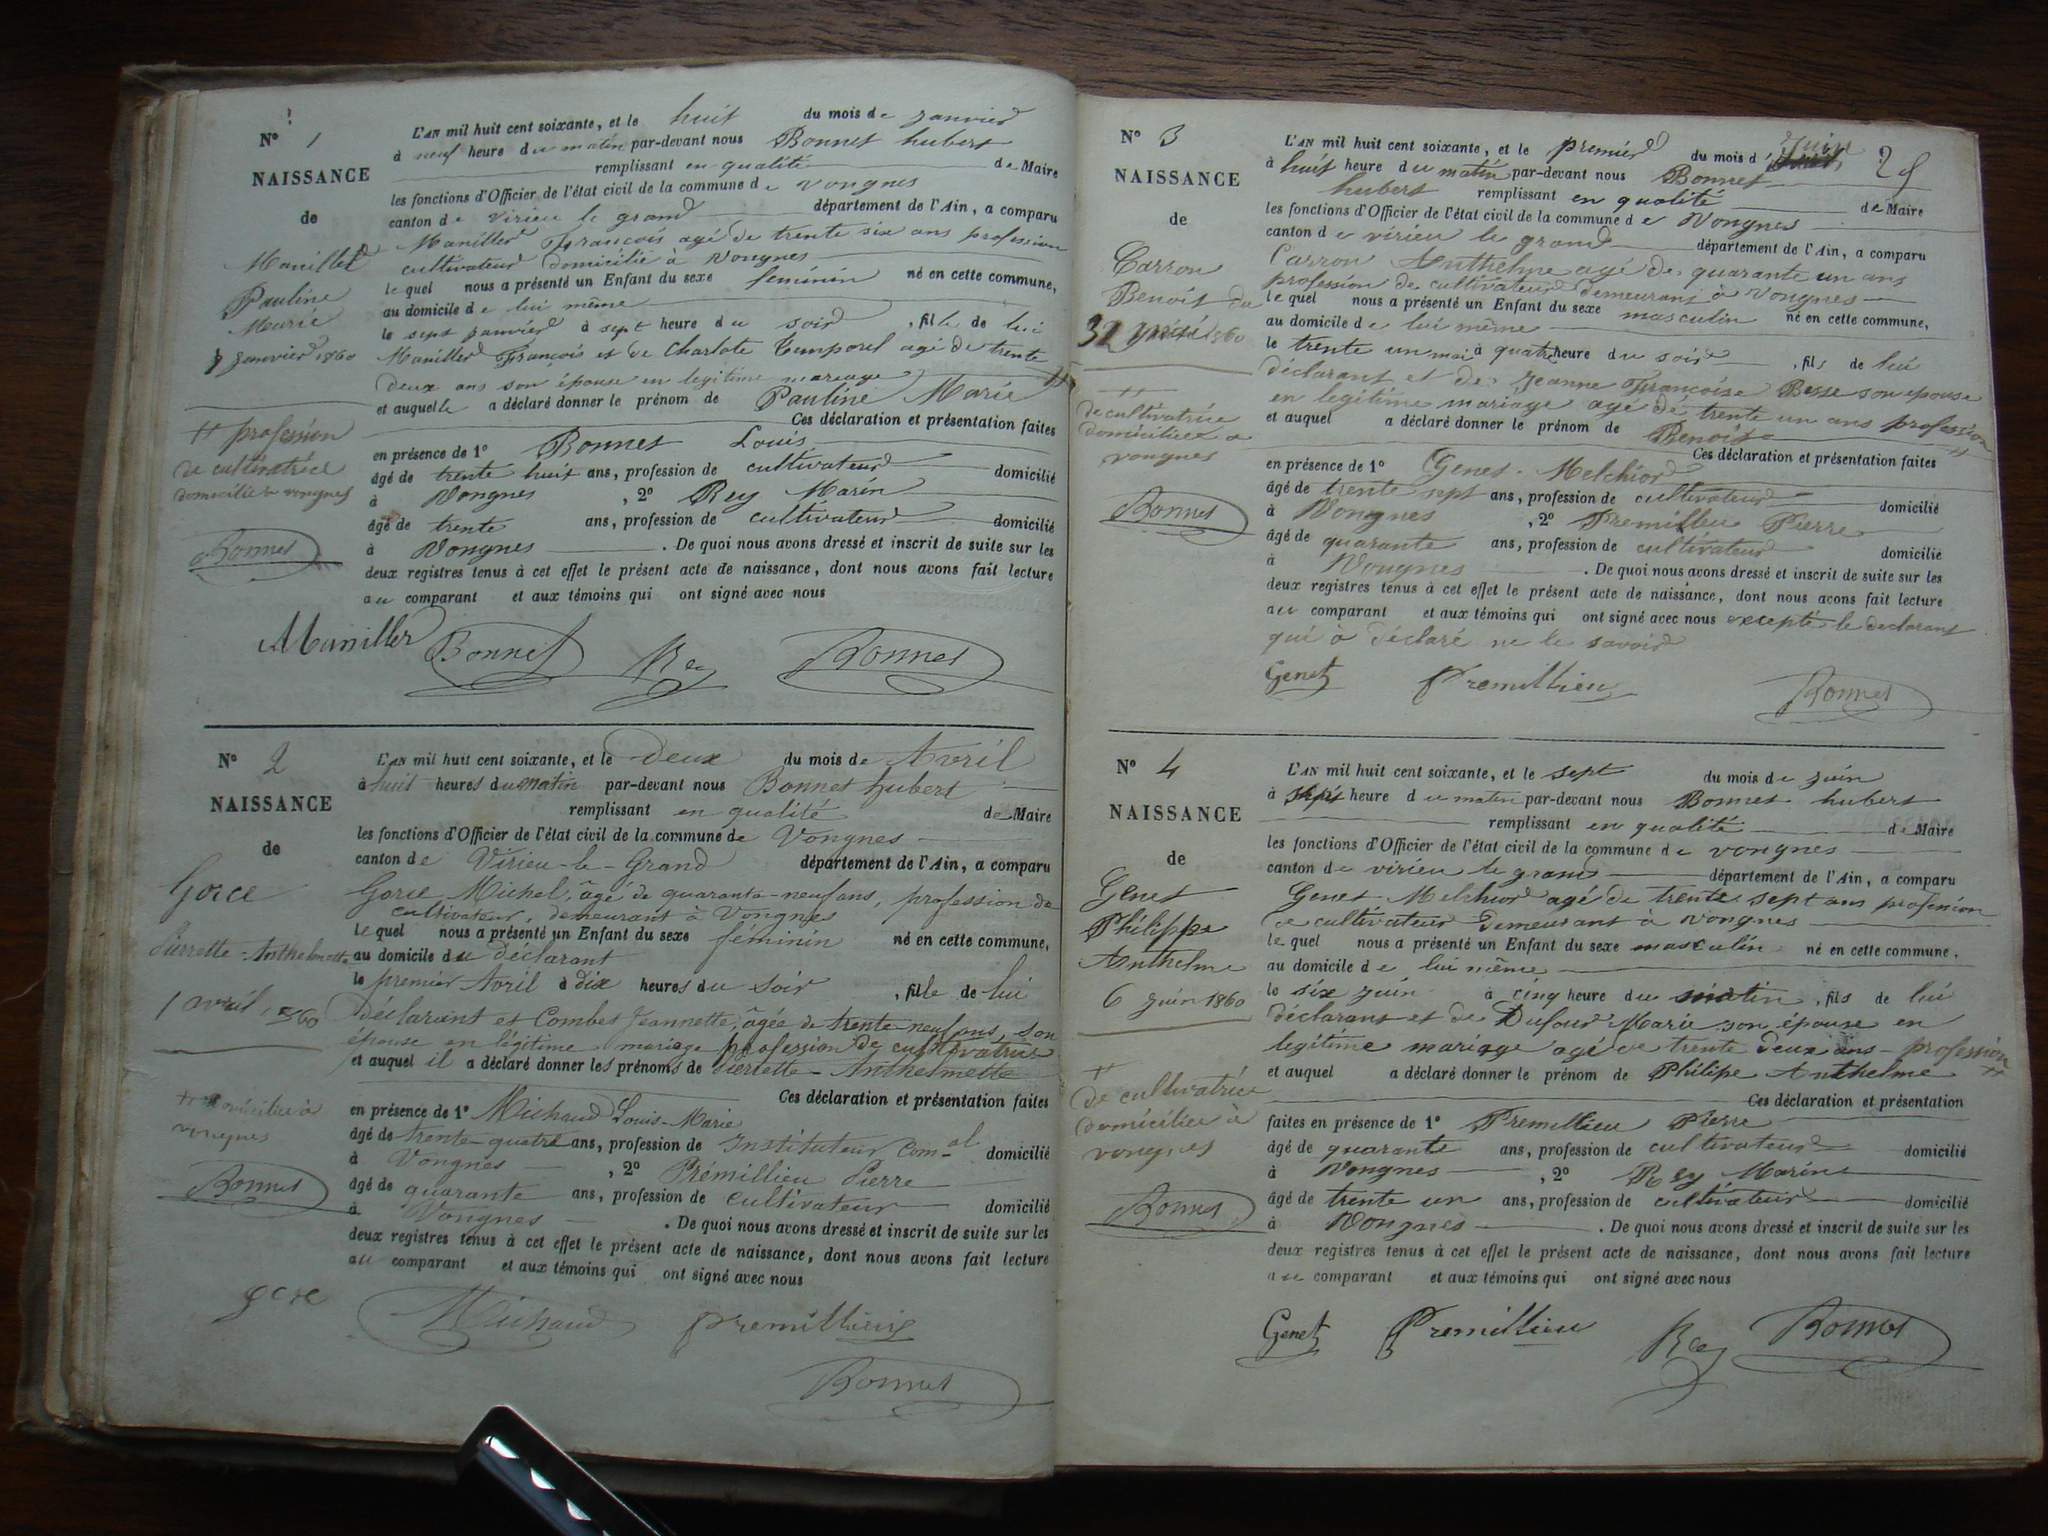 N° 1
NAISSANCE
de
Maniller
Pauline
Marie
7 janvier 1860
# profession
de cultivatrice
domiciliée à vongnes
Bonnet
L'AN mil huit cent soixante, et le huit du mois de janvier
à neuf heure du matin par-devant nous Bonnet hubert
remplissant en qualité de Maire
les fonctions d'Officier de l'état civil de la commune de vongnes
canton de virieu le grand département de l'Ain, a comparu
Maniller François agé de trente six ans profession
cultivateur domicilié à vongnes
lequel nous a présenté un Enfant du sexe féminin né en cette commune,
au domicile de lui même
le sept janvier à sept heure du soir, fille de lui
Maniller François et de Charlote Temporel agé de trente
deux ans son épouse en legitime mariage #
et auquelle a déclaré donner le prénom de Pauline Marie
Ces déclaration et présentation faites
en présence de 1° Bonnet Louis
âgé de trente huit ans, profession de cultivateur domicilié
à Vongnes, 2° Rey Marin
âgé de trente ans, profession de cultivateur domicilié
à Vongnes. De quoi nous avons dressé et inscrit de suite sur les
deux registres tenus à cet effet le présent acte de naissance, dont nous avons fait lecture
au comparant et aux témoins qui ont signé avec nous
Maniller Bonnet Rey Bonnet
N° 2
NAISSANCE
de
Gorce
Pierrette-Anthelmette
1 avril 1860
# domiciliée à
vongnes
Bonnet
L'AN mil huit cent soixante, et le Deux du mois de Avril
à huit heures du matin par-devant nous Bonnet hubert
remplissant en qualité de Maire
les fonctions d'Officier de l'état civil de la commune de Vongnes
canton de Virieu-le-Grand département de l'Ain, a comparu
Gorce Michel, âgé de quarante-neuf ans, profession de
cultivateur, demeurant à Vongnes
lequel nous a présenté un Enfant du sexe féminin né en cette commune,
au domicile du déclarant
le premier Avril à dix heures du soir, fille de lui
déclarant et Combet Jeannette, âgée de trente neuf ans, son
épouse en légitime mariage profession de cultivatrice
et auquel il a déclaré donner les prénoms de Pierrette-Anthelmette
Ces déclaration et présentation faites
en présence de 1° Michaud Louis-Marie
âgé de trente-quatre ans, profession de Instituteur Com-al domicilié
à Vongnes, 2° Prémillieu Pierre
âgé de quarante ans, profession de cultivateur domicilié
à Vongnes. De quoi nous avons dressé et inscrit de suite sur les
deux registres tenus à cet effet le présent acte de naissance, dont nous avons fait lecture
au comparant et aux témoins qui ont signé avec nous
Gorce Michaud Premillieu
Bonnet
N° 3
NAISSANCE
de
Carron
Benoit du
31 1860
#
de cultivatrice
domiciliée à
vongnes
Bonnet
L'AN mil huit cent soixante, et le premier du mois d Juin
à huit heure du matin par-devant nous Bonnet
hubert remplissant en qualité de Maire
les fonctions d'Officier de l'état civil de la commune de Vongnes
canton de virieu le grand département de l'Ain, a comparu
Carron Anthelme agé de quarante un ans
profession de cultivateur demeurant à vongnes
lequel nous a présenté un Enfant du sexe masculin né en cette commune,
au domicile de lui même
le trente un mai à quatre heure du soir, fils de lui
déclarant et de Jeanne Françoise Besse son epouse
en legitime mariage agé de trente un ans profession #
et auquel a déclaré donner le prénom de Benoit
Ces déclaration et présentation faites
en présence de 1° Genet Melchior
âgé de trente sept ans, profession de cultivateur domicilié
à Vongnes, 2° Premillieu Pierre
âgé de quarante ans, profession de cultivateur domicilié
à Vongnes. De quoi nous avons dressé et inscrit de suite sur les
deux registres tenus à cet effet le présent acte de naissance, dont nous avons fait lecture
au comparant et aux témoins qui ont signé avec nous excepté le declarant
qui à déclaré ne le savoir
Genet Premillieu Bonnet
N° 4
NAISSANCE
de
Genet
Philippe
Anthelme
6 juin 1860
#
de cultivatrice
domiciliée à
vongnes
Bonnet
L'AN mil huit cent soixante, et le sept du mois de juin
à sept heure du matin par-devant nous Bonnet hubert
remplissant en qualité de Maire
les fonctions d'Officier de l'état civil de la commune de vongnes
canton de virieu le grand département de l'Ain, a comparu
Genet Melchior agé de trente sept ans profession
de cultivateur demeurant à vongnes
lequel nous a présenté un Enfant du sexe masculin né en cette commune,
au domicile de lui même
le six juin à cinq heure du matin, fils de lui
déclarant et de Dufour Marie son épouse en
legitime mariage agé de trente deux ans profession #
et auquel a déclaré donner le prénom de Philipe Anthelme
Ces déclaration et présentation
faites en présence de 1° Premillieu Pierre
âgé de quarante ans, profession de cultivateur domicilié
à Vongnes, 2° Rey Marin
âgé de trente un ans, profession de cultivateur domicilié
à Vongnes. De quoi nous avons dressé et inscrit de suite sur les
deux registres tenus à cet effet le présent acte de naissance, dont nous avons fait lecture
au comparant et aux témoins qui ont signé avec nous
Genet Premillieu Rey Bonnet